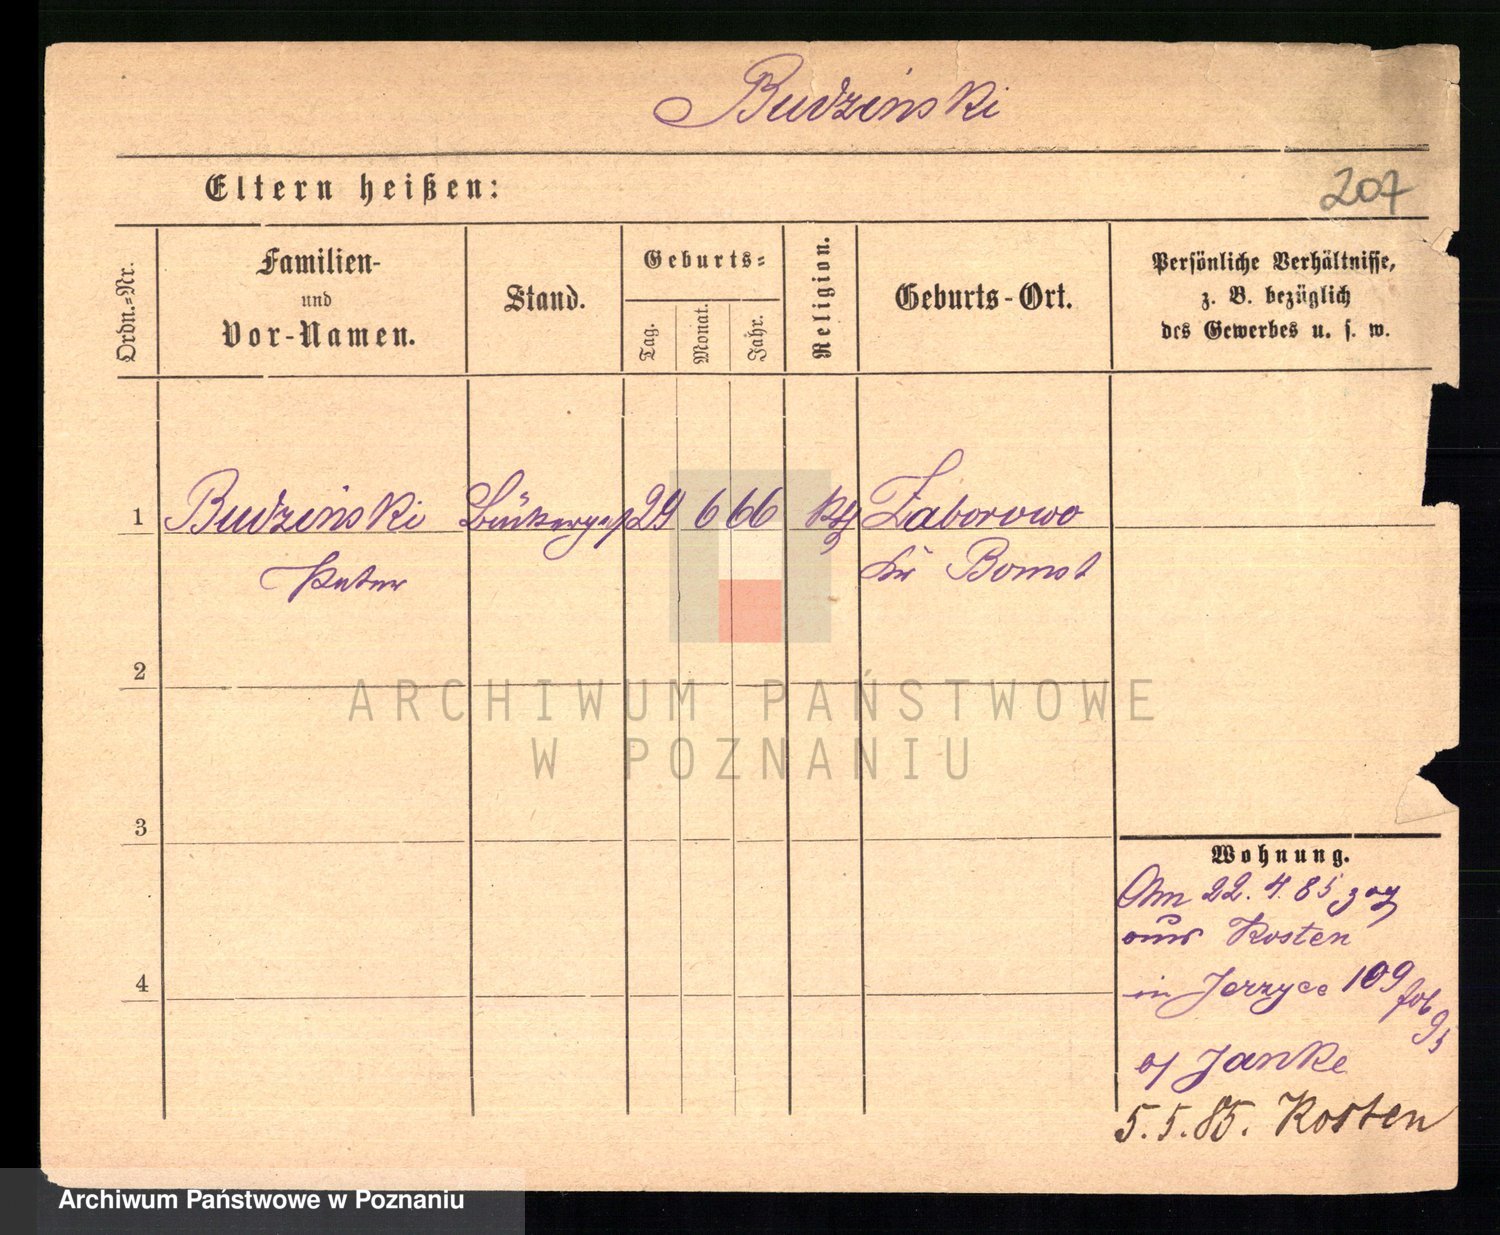 Budzinski
Eltern heißen:
207
Ordn.-Nr.
Familien-
und
Vor-Namen.
Stand.
Geburts-
Tag.
Monat.
Jahr.
Religion.
Geburts-Ort.
Persönliche Verhältnisse,
z. B. bezüglich
des Gewerbes u. s. w.
1
Budzinski
29 6 66
kth
Zaborowo
Peter
Kr Bomst
2
3
4
Wohnung.
Am 22. 4. 85 zog
aus Kosten
in Jerzyce 109
b/ Janke
5.5.85. Kosten
ARCHIWUM PAŃSTWOWE
W POZNANIU
Archiwum Państwowe w Poznaniu